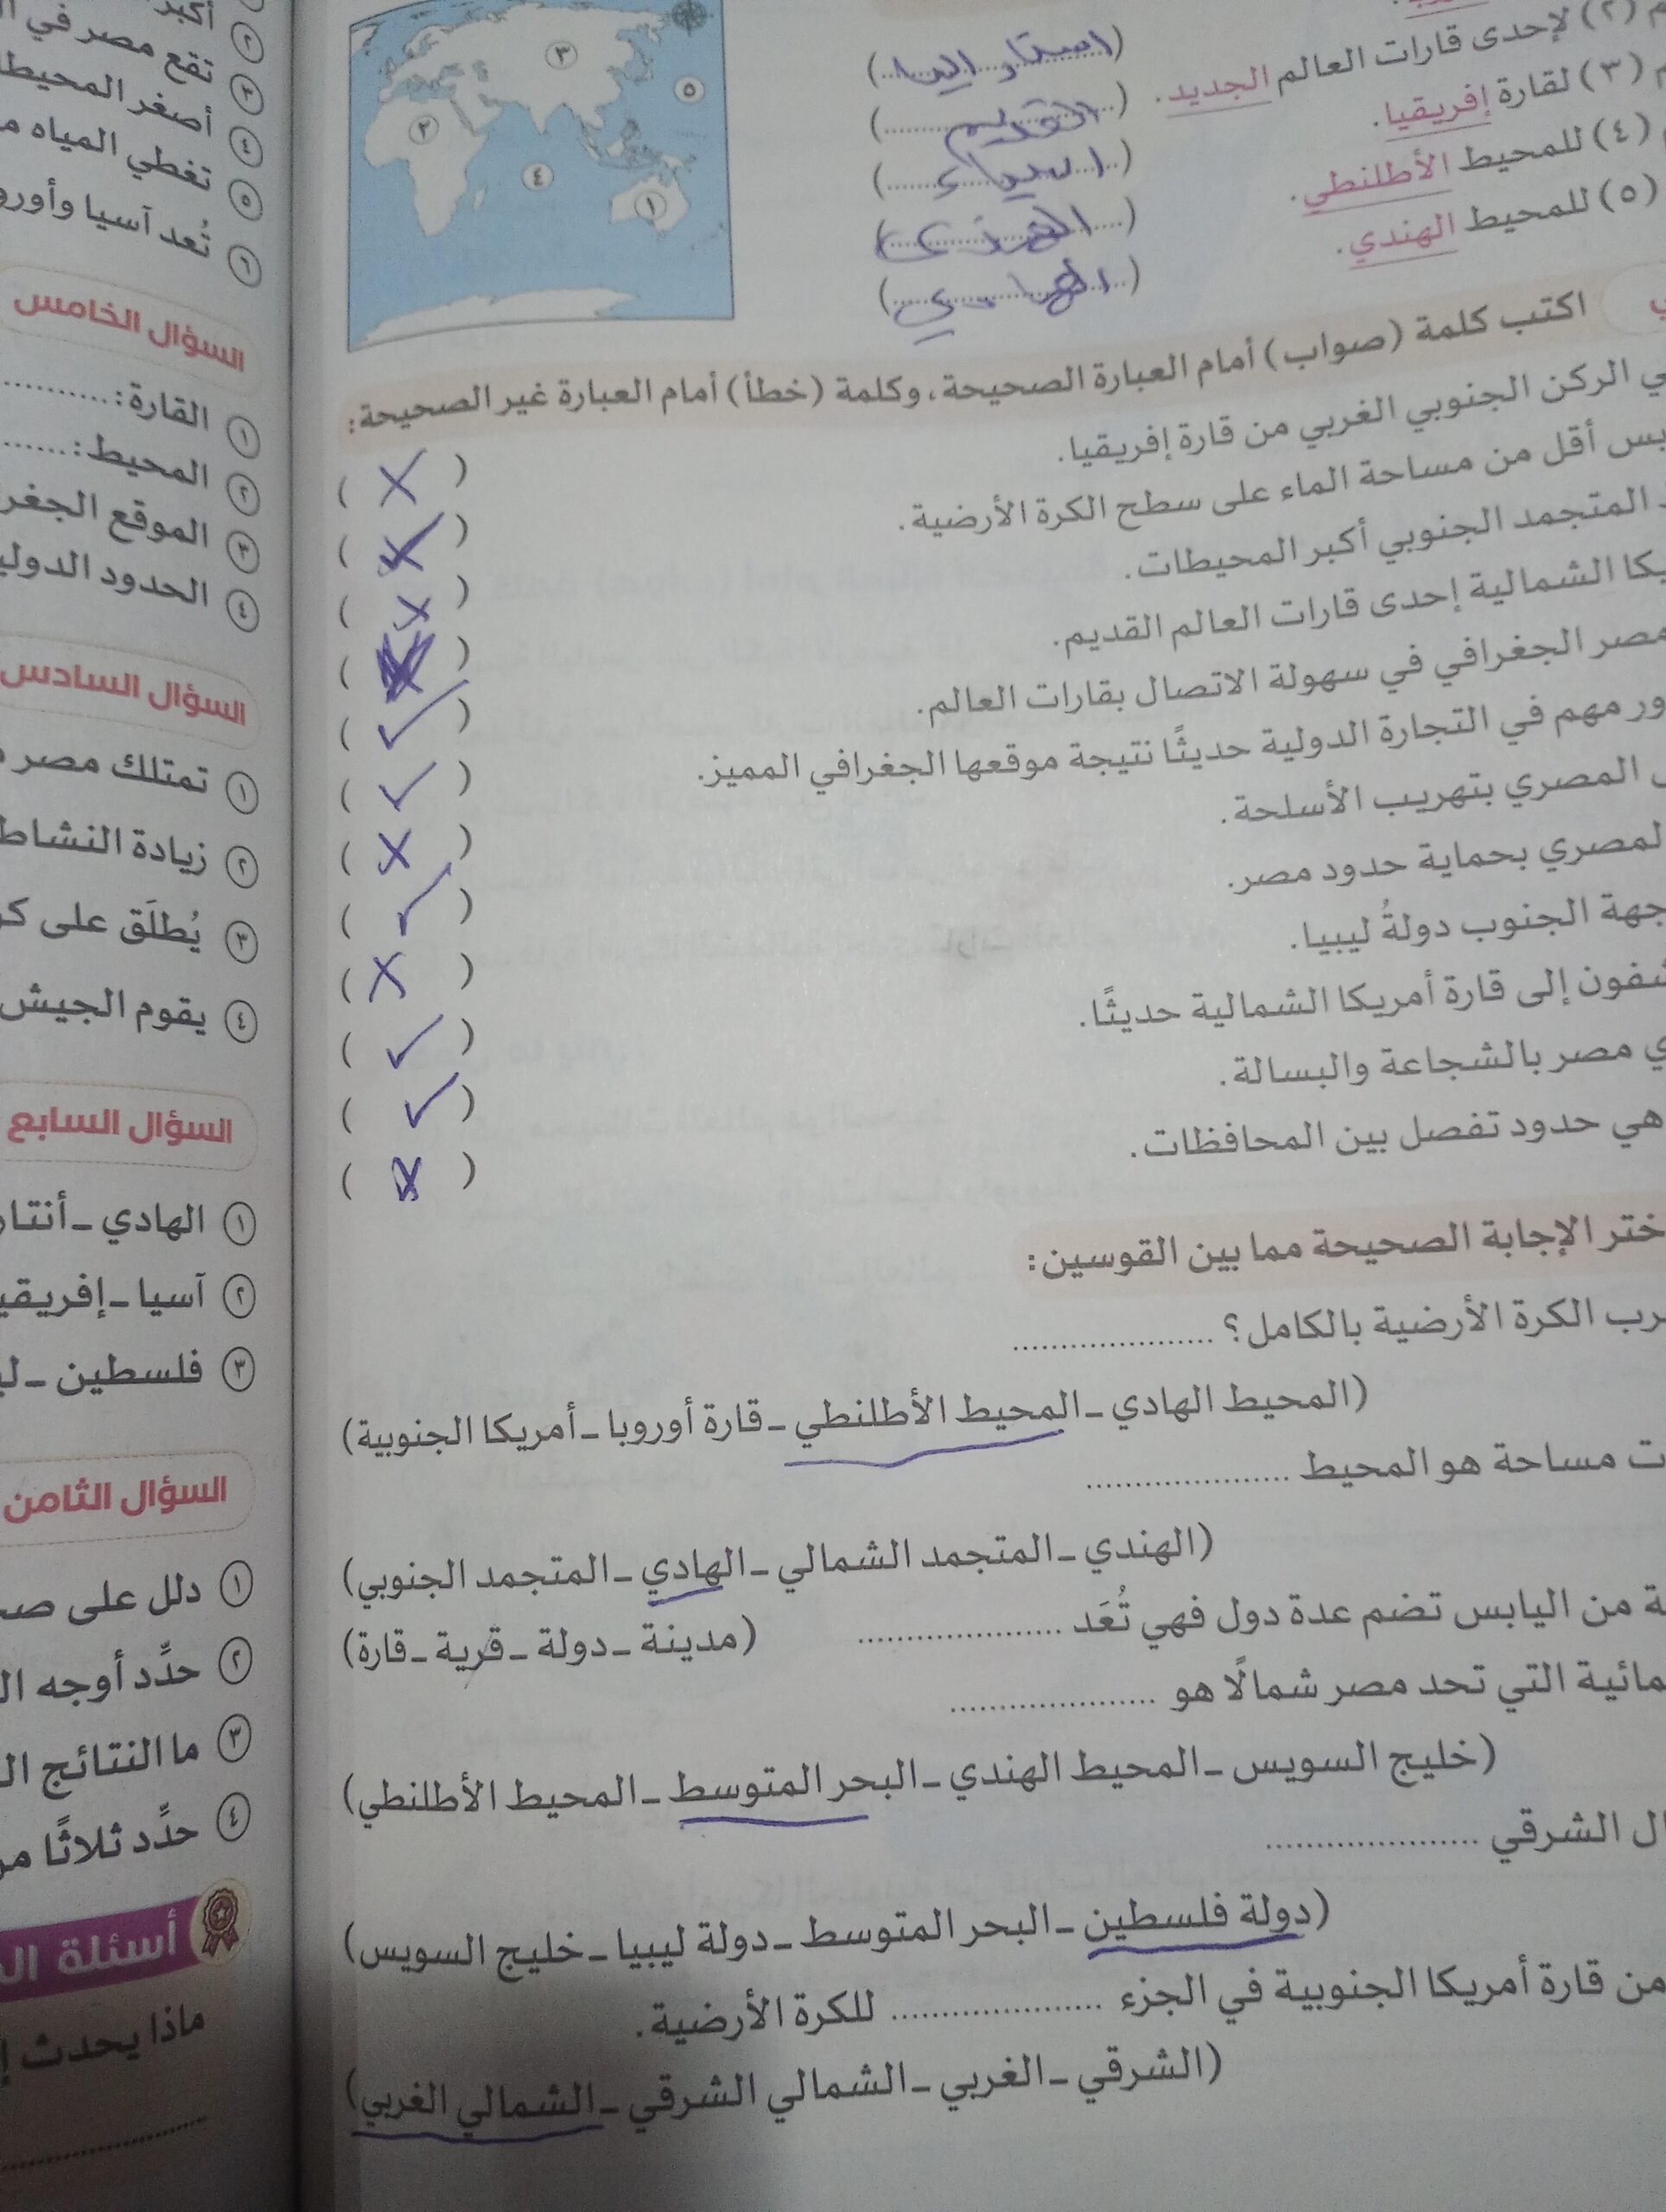 (٢) لإحدى قارات العالم الجديد. (استراليا)
(٣) لقارة إفريقيا. (القديم)
(٤) للمحيط الأطلنطي. (اسياء)
(٥) للمحيط الهندي. (الهندي)
(الهادي)
٣
٢
٥
٤
١
اكتب كلمة (صواب) أمام العبارة الصحيحة، وكلمة (خطأ) أمام العبارة غير الصحيحة:
الركن الجنوبي الغربي من قارة إفريقيا. ( ✗ )
أقل من مساحة الماء على سطح الكرة الأرضية. ( )
المتجمد الجنوبي أكبر المحيطات. ( ✗ )
الشمالية إحدى قارات العالم القديم. ( )
مصر الجغرافي في سهولة الاتصال بقارات العالم. ( ✓ )
مهم في التجارة الدولية حديثًا نتيجة موقعها الجغرافي المميز. ( ✓ )
المصري بتهريب الأسلحة. ( ✗ )
المصري بحماية حدود مصر. ( ✓ )
جهة الجنوب دولةُ ليبيا. ( ✗ )
إلى قارة أمريكا الشمالية حديثًا. ( ✓ )
مصر بالشجاعة والبسالة. ( ✓ )
هي حدود تفصل بين المحافظات. ( ✗ )
ختر الإجابة الصحيحة مما بين القوسين:
الكرة الأرضية بالكامل؟ ....................
(المحيط الهادي - المحيط الأطلنطي - قارة أوروبا - أمريكا الجنوبية)
مساحة هو المحيط ....................
(الهندي - المتجمد الشمالي - الهادي - المتجمد الجنوبي)
من اليابس تضم عدة دول فهي تُعَد .................... (مدينة - دولة - قرية - قارة)
التي تحد مصر شمالًا هو ....................
(خليج السويس - المحيط الهندي - البحر المتوسط - المحيط الأطلنطي)
الشرقي ....................
(دولة فلسطين - البحر المتوسط - دولة ليبيا - خليج السويس)
من قارة أمريكا الجنوبية في الجزء .................... للكرة الأرضية.
(الشرقي - الغربي - الشمالي الشرقي - الشمالي الغربي)
أكبر
٢ تقع مصر في
٣ أصغر المحيطا
٤ تغطي المياه
٥ تُعد آسيا وأورو
٦
السؤال الخامس
١ القارة: ..........
٢ المحيط: ......
٣ الموقع الجغر
٤ الحدود الدولي
السؤال السادس
١ تمتلك مصر
٢ زيادة النشاط
٣ يُطلَق على
٤ يقوم الجيش
السؤال السابع
١ الهادي - أنتار
٢ آسيا - إفريقي
٣ فلسطين -
السؤال الثامن
١ دلل على
٢ حدِّد أوجه
٣ ما النتائج
٤ حدِّد ثلاثًا
أسئلة
ماذا يحدث